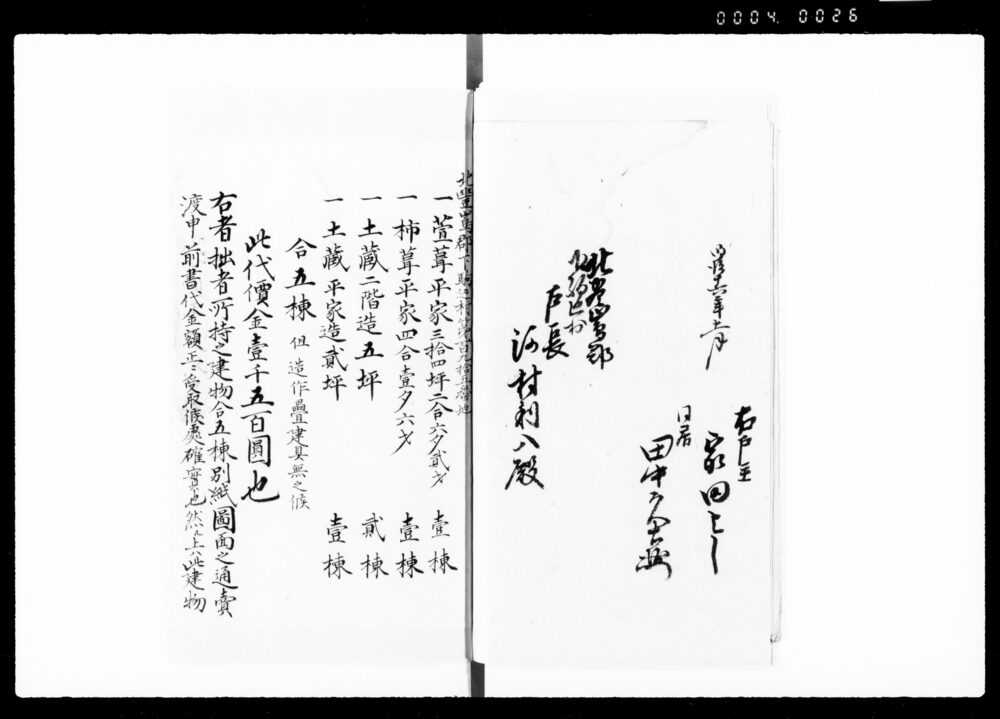 0004 0026
明治十六年
右戸主
同居
田中
北豊島郡
戸長
河村利八殿
北豊島郡下駒込村第百九拾五番地
一萱葺平家三拾四坪二合六夕貳才 壹棟
一柿葺平家四合壹夕六才 壹棟
一土藏二階造五坪 貳棟
一土藏平家造貳坪 壹棟
合五棟 但造作疊建具無之候
此代價金壹千五百圓也
右者拙者所持之建物合五棟別紙圖面之通賣
渡申前書代金額正ニ受取候處確實也然ル上ハ此建物